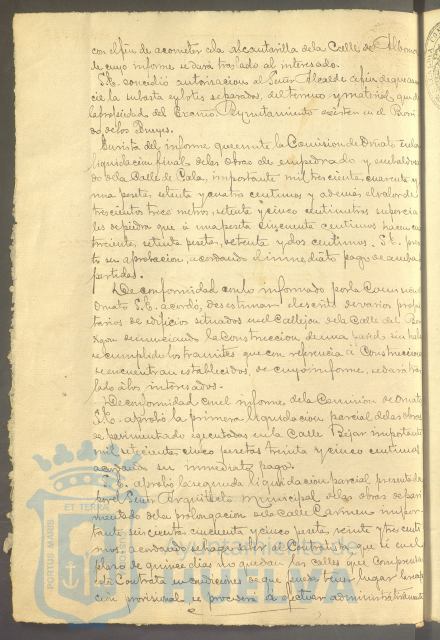 con el fin de acometer á la Alcantarilla de la Calle de
de cuyo informe se dará traslado al interesado.
S.E. concedió autorizacion al Señor Alcalde á fin de que anun
cie la subasta en lotes separados, del terreno y material que de
la propiedad del Excmo Ayuntamiento existen en el
do de los
En vista del informe que emite la Comision de Ornato en la
liquidacion final de las obras de empedrado y embaldosa
do de la Calle de Gala, importante mil trescientas cuarenta y
una peseta, setenta y cuatro centimos y además el valor de
trescientos trece metros, setenta y cinco centimetros superficia
les de piedra que á una peseta cincuenta centimos hacen cua
trocientas, setenta pesetas, setenta y dos centimos. S.E. pres
tó su aprobacion, acordando el inmediato pago de ambas
partidas.
De conformidad con lo informado por la Comision de
Ornato S.E. acordó, desestimar el escrito de varios propie
tarios de edificios situados en el Callejon de la Calle del
denunciando la construccion de una pared sin haber
se cumplido los tramites que con referencia á Construcciones
se encuentran establecidos, de cuyo informe, se dará tras
lado á los interesados.
De conformidad con el informe de la Comision de Ornato
S.E. aprobó la primera liquidacion parcial de las obras
de pavimentado ejecutadas en la Calle Bejar importante
mil cinco pesetas treinta y cinco centimos
acordando su inmediato pago.
S.E. aprobó la segunda liquidacion parcial presentada
por el Señor Arquitecto Municipal de las obras de pavi
mentado de la prolongacion de la Calle Carmen impor
tante cincuenta y cinco pesetas, veinte y tres centi
mos, acordando su pago y al Contratista, que si en el
plazo de quince dias no quedan las calles que comprende
esta Contrata en condiciones de que pueda tener lugar la recep
cion provisional se procederá á efectuar administrativamente
PORTUS MARIS ET TERRAE
Ayuntamiento de
HUELVA